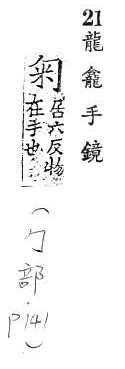 21龍龕手鏡
匊居六反物
在手也
(勹部.P141)